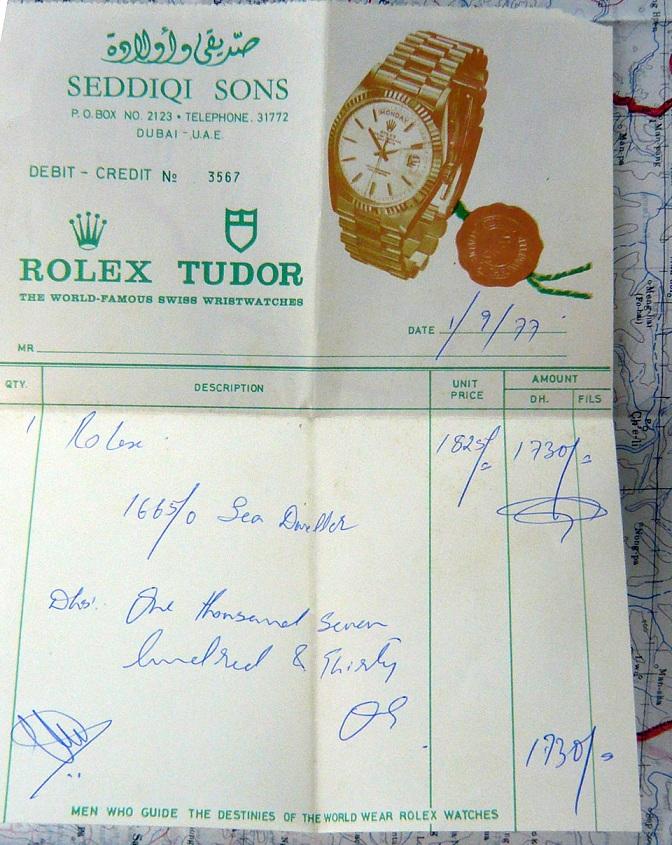 صدّيقي وأولاده
SEDDIQI SONS
P.O.BOX NO. 2123 • TELEPHONE. 31772
DUBAI - U.A.E.
DEBIT - CREDIT No 3567
ROLEX TUDOR
THE WORLD-FAMOUS SWISS WRISTWATCHES
MONDAY
DATE 1/9/77
MR
QTY. DESCRIPTION UNIT PRICE AMOUNT
DH. FILS
1 Rolex 1825/= 1730/=
1665/0 Sea Dweller
Dhs. One thousand seven
hundred & Thirty
1730/=
MEN WHO GUIDE THE DESTINIES OF THE WORLD WEAR ROLEX WATCHES